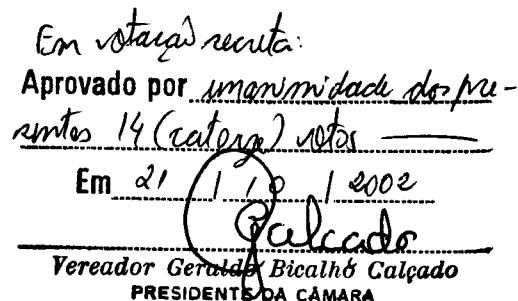 Em votação secreta:
Aprovado por unanimidade dos pre-
sentes 14 (catorze) votos
Em 21 / 10 / 2002
Calçado
Vereador Geraldo Bicalho Calçado
PRESIDENTE DA CÂMARA